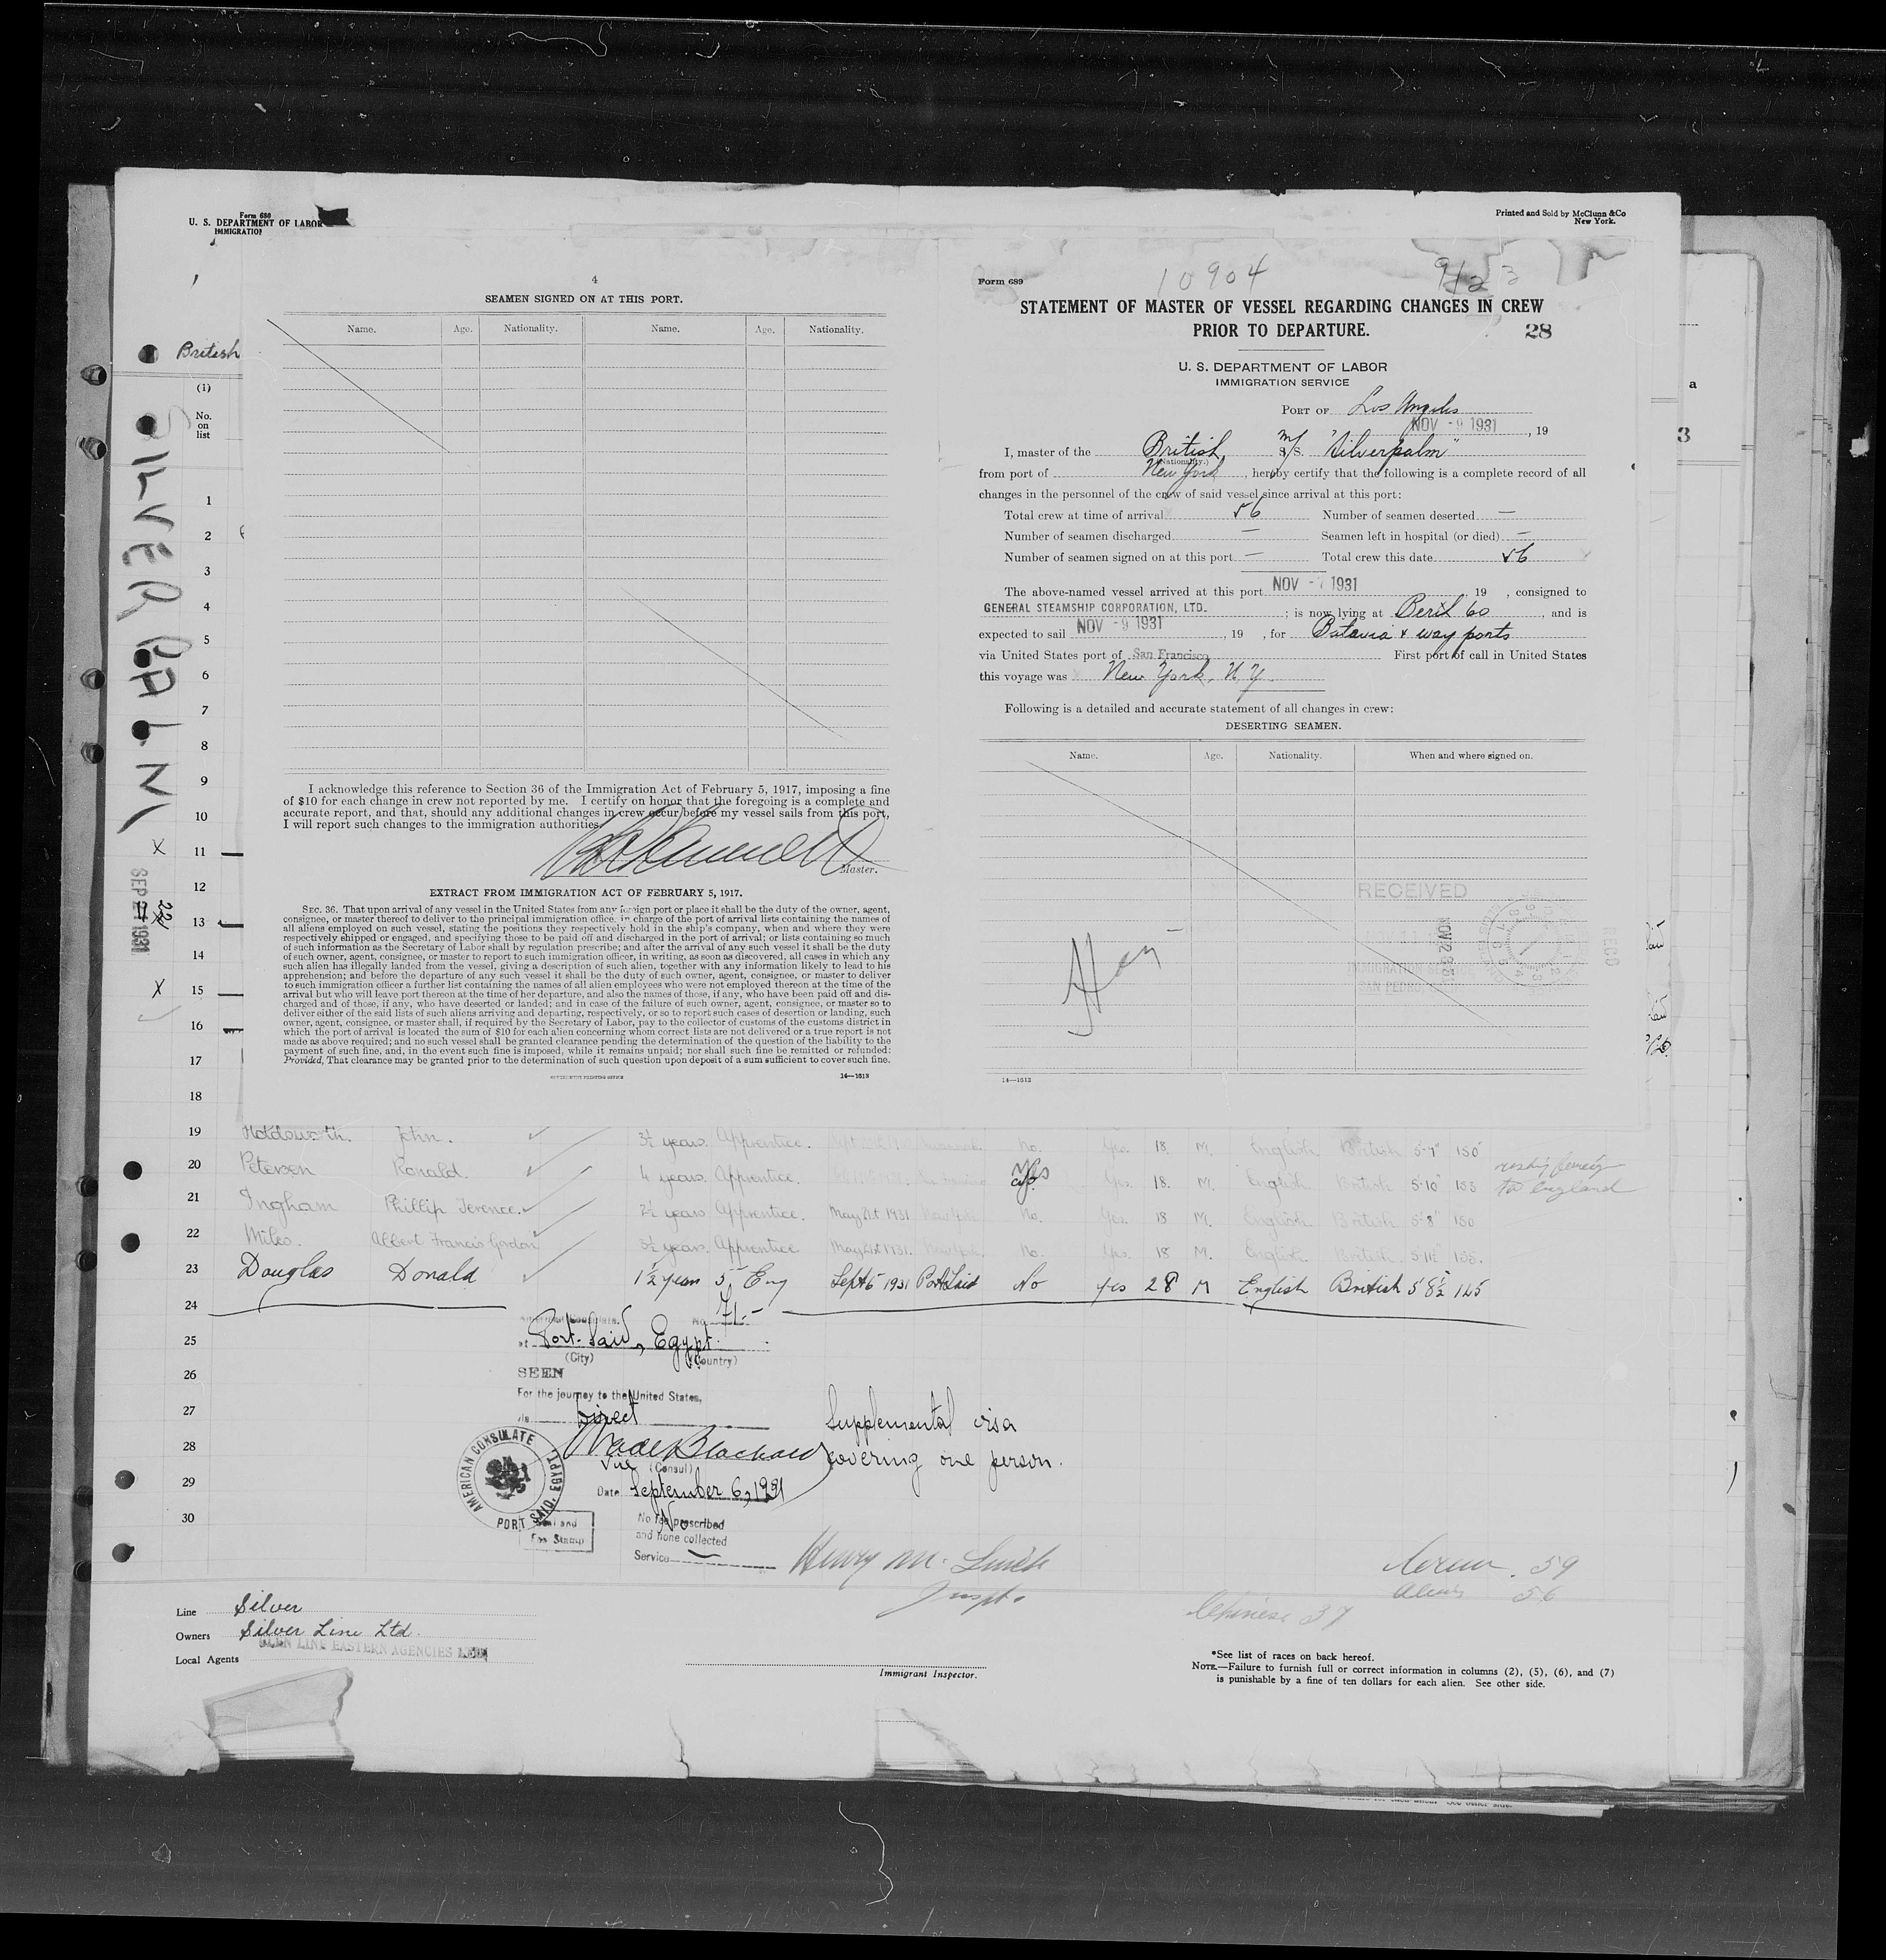 Form 680
U. S. DEPARTMENT OF LABOR
IMMIGRATION
Printed and Sold by McClunn &Co
New York.
British
(1)
No.
on
list
SILVERPALM
SEP 22 1931
1
2
3
4
5
6
7
8
9
10
X 11
12
13
14
X 15
16
17
18
4
SEAMEN SIGNED ON AT THIS PORT.
Name. Age. Nationality. Name. Age. Nationality.
I acknowledge this reference to Section 36 of the Immigration Act of February 5, 1917, imposing a fine
of $10 for each change in crew not reported by me. I certify on honor that the foregoing is a complete and
accurate report, and that, should any additional changes in crew occur before my vessel sails from this port,
I will report such changes to the immigration authorities.
Master.
EXTRACT FROM IMMIGRATION ACT OF FEBRUARY 5, 1917.
SEC. 36. That upon arrival of any vessel in the United States from any foreign port or place it shall be the duty of the owner, agent,
consignee, or master thereof to deliver to the principal immigration office in charge of the port of arrival lists containing the names of
all aliens employed on such vessel, stating the positions they respectively hold in the ship's company, when and where they were
respectively shipped or engaged, and specifying those to be paid off and discharged in the port of arrival; or lists containing so much
of such information as the Secretary of Labor shall by regulation prescribe; and after the arrival of any such vessel it shall be the duty
of such owner, agent, consignee, or master to report to such immigration officer, in writing, as soon as discovered, all cases in which any
such alien has illegally landed from the vessel, giving a description of such alien, together with any information likely to lead to his
apprehension; and before the departure of any such vessel it shall be the duty of such owner, agent, consignee, or master to deliver
to such immigration officer a further list containing the names of all alien employees who were not employed thereon at the time of the
arrival but who will leave port thereon at the time of her departure, and also the names of those, if any, who have been paid off and dis-
charged and of those, if any, who have deserted or landed; and in case of the failure of such owner, agent, consignee, or master so to
deliver either of the said lists of such aliens arriving and departing, respectively, or so to report such cases of desertion or landing, such
owner, agent, consignee, or master shall, if required by the Secretary of Labor, pay to the collector of customs of the customs district in
which the port of arrival is located the sum of $10 for each alien concerning whom correct lists are not delivered or a true report is not
made as above required; and no such vessel shall be granted clearance pending the determination of the question of the liability to the
payment of such fine, and, in the event such fine is imposed, while it remains unpaid; nor shall such fine be remitted or refunded:
Provided, That clearance may be granted prior to the determination of such question upon deposit of a sum sufficient to cover such fine.
GOVERNMENT PRINTING OFFICE 14—1613
10904
Form 689
STATEMENT OF MASTER OF VESSEL REGARDING CHANGES IN CREW
PRIOR TO DEPARTURE.
28
U. S. DEPARTMENT OF LABOR
IMMIGRATION SERVICE
PORT OF Los Angeles
NOV -9 1931, 19
I, master of the British M/S. "Silverpalm"
(Nationality.)
from port of New York, hereby certify that the following is a complete record of all
changes in the personnel of the crew of said vessel since arrival at this port:
Total crew at time of arrival 56 Number of seamen deserted —
Number of seamen discharged — Seamen left in hospital (or died) —
Number of seamen signed on at this port — Total crew this date 56
The above-named vessel arrived at this port NOV -7 1931, 19 , consigned to
GENERAL STEAMSHIP CORPORATION, LTD. ; is now lying at Berth 60, and is
expected to sail NOV -9 1931, 19 , for Batavia & way ports
via United States port of San Francisco First port of call in United States
this voyage was New York, N.Y.
Following is a detailed and accurate statement of all changes in crew:
DESERTING SEAMEN.
Name. Age. Nationality. When and where signed on.
RECEIVED
IMMIGRATION SERVICE
SAN PEDRO
RECD
14—1613
a
3
19 Holdsworth. John. 3½ years. Apprentice. No. Yes. 18. M. English British 5-7" 150
20 Petersen Ronald. 4 years. Apprentice. Yes Yes. 18. M. English British 5-10"
to England
21 Ingham Phillip Terence. 2½ years Apprentice. May 21st 1931 New York No. Yes 18 M. English British 5-8" 150
22 Miles. Albert Francis Gordon 3½ years. Apprentice May 21st 1931. New York. No. Yes. 18 M. English British
23 Douglas Donald 1½ year 5 Eng Sept 5 1931 Port Said No yes 28 M English British 5 8½ 125
24
25
26
27
28
29
30
American Consulate. No. 71.-
at Port-Said, Egypt.
(City) (Country)
SEEN
For the journey to the United States,
via Direct
Vice (Consul)
Date September 6, 1931
AMERICAN CONSULATE
PORT SAID, EGYPT.
Seal and
Fee Stamp
No fee prescribed
and none collected
Service —
Supplemental visa
covering one person.
Henry M. Smith
Inspt.
59
Aliens 56
Chinese 37
Line Silver
Owners Silver Line Ltd.
GLEN LINE EASTERN AGENCIES LTD.
Local Agents
Immigrant Inspector.
*See list of races on back hereof.
NOTE.—Failure to furnish full or correct information in columns (2), (5), (6), and (7)
is punishable by a fine of ten dollars for each alien. See other side.